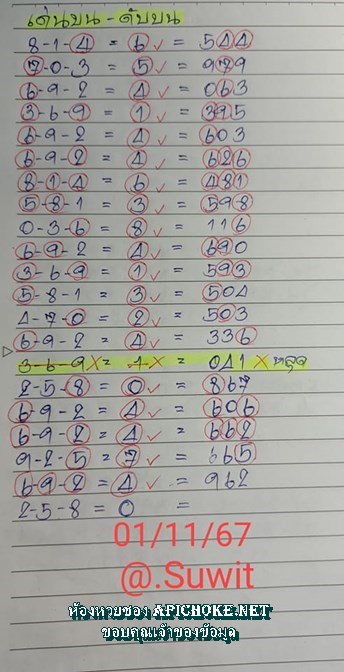 เด่นบน - ดับบน
8-1-4 = 6 ✓ = 544
7-0-3 = 5 ✓ = 979
6-9-2 = 4 ✓ = 063
3-6-9 = 1 ✓ = 395
6-9-2 = 4 ✓ = 603
6-9-2 = 4 ✓ = 626
8-1-4 = 6 ✓ = 481
5-8-1 = 3 ✓ = 598
0-3-6 = 8 ✓ = 116
6-9-2 = 4 ✓ = 690
3-6-9 = 1 ✓ = 593
5-8-1 = 3 ✓ = 504
4-7-0 = 2 ✓ = 503
6-9-2 = 4 ✓ = 336
3-6-9 X = 1 X = 041 X หลุด
2-5-8 = 0 ✓ = 867
6-9-2 = 4 ✓ = 606
6-9-2 = 4 ✓ = 662
9-2-5 = 7 ✓ = 665
6-9-2 = 4 ✓ = 962
2-5-8 = 0 =
01/11/67
@.Suwit
ห้องหวยซอง APICHOKE.NET
ขอบคุณเจ้าของข้อมูล